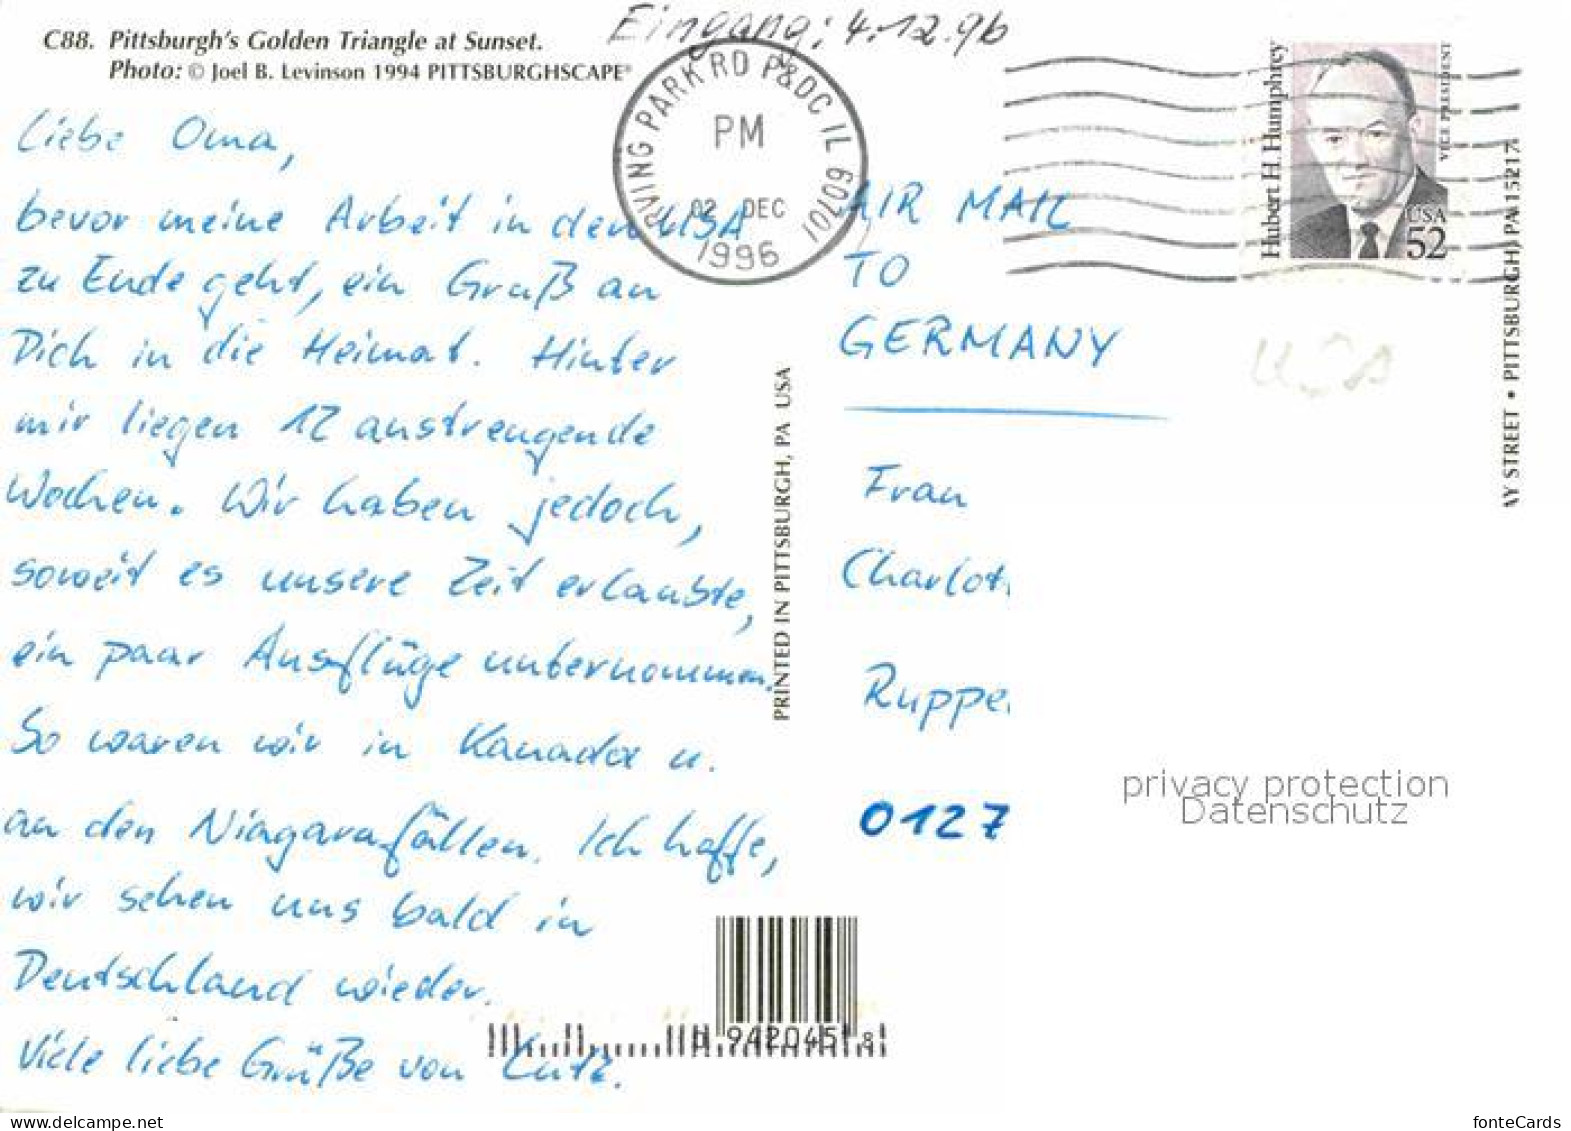 C88. Pittsburgh's Golden Triangle at Sunset.
Photo: © Joel B. Levinson 1994 PITTSBURGHSCAPE®
Eingang: 4.12.96
IRVING PARK RD P&DC IL 60701
PM
02 DEC
1996
Hubert H. Humphrey
VICE PRESIDENT
USA
52
Liebe Oma,
bevor meine Arbeit in den USA
zu Ende geht, ein Gruß an
Dich in die Heimat. Hinter
mir liegen 12 anstrengende
Wochen. Wir haben jedoch,
soweit es unsere Zeit erlaubte,
ein paar Ausflüge unternommen.
So waren wir in Kanada u.
an den Niagarafällen. Ich hoffe,
wir sehen uns bald in
Deutschland wieder.
Viele liebe Grüße von Lutz.
PRINTED IN PITTSBURGH, PA USA
AIR MAIL
TO
GERMANY
USA
Frau
Charlott
Ruppe
0127
AY STREET • PITTSBURGH, PA 15217
privacy protection
Datenschutz
0 942045 8
www.delcampe.net
fonteCards